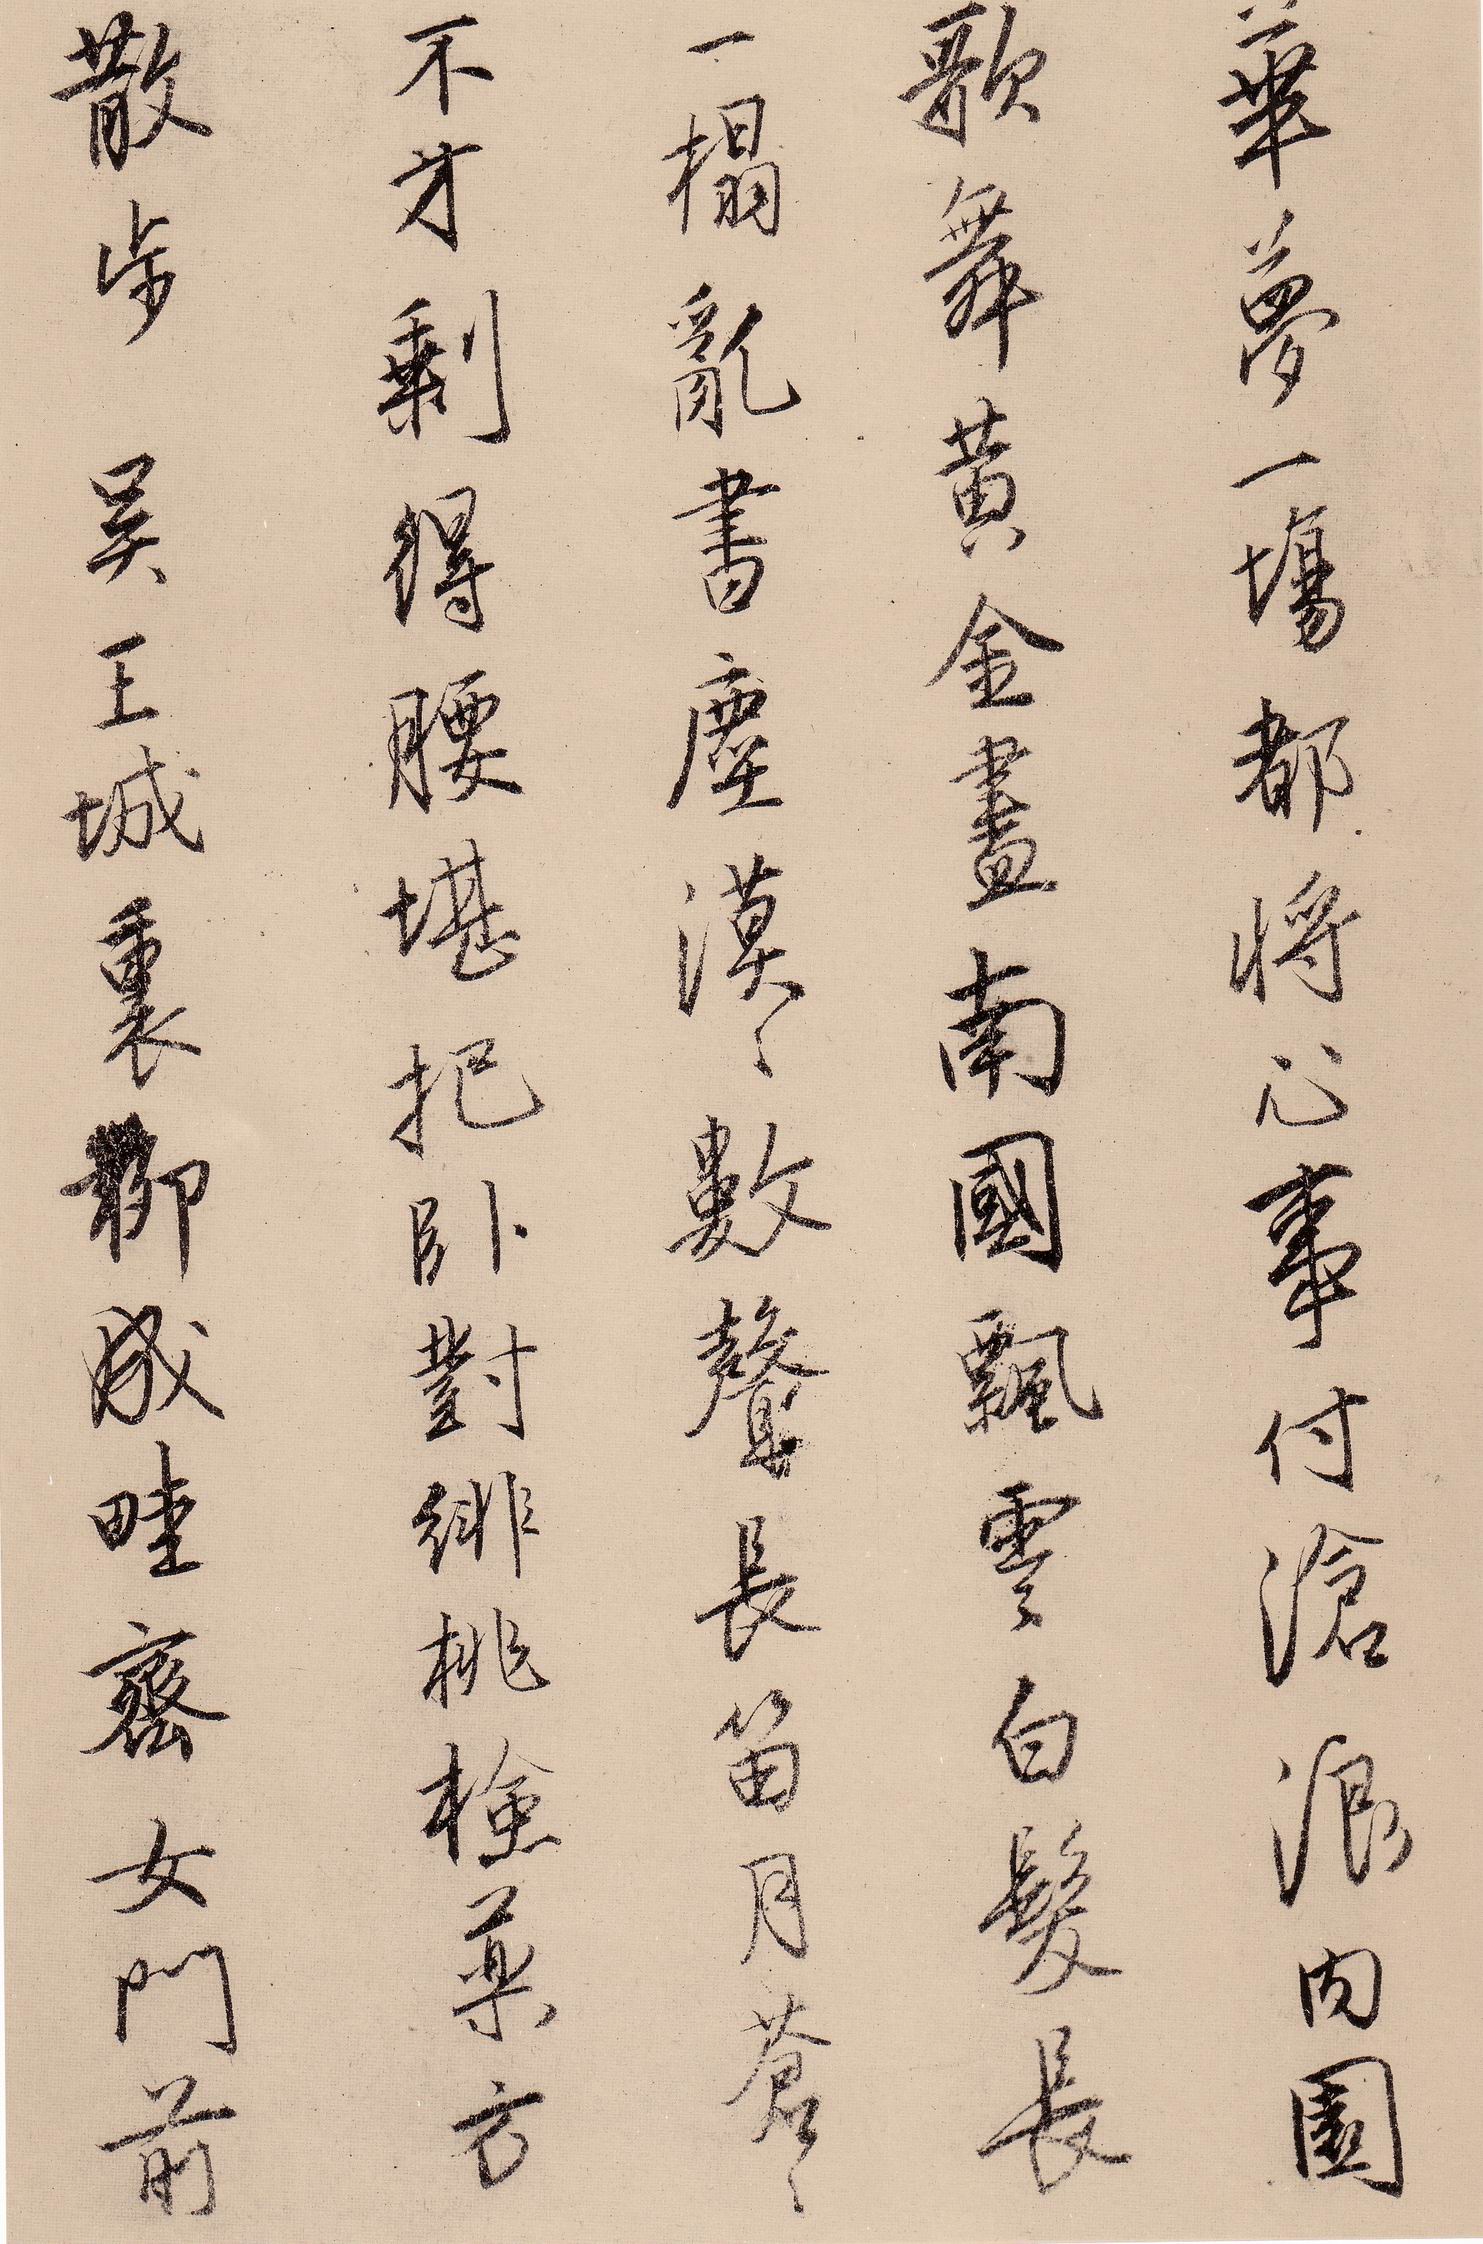 華夢一場都將心事付滄浪内園
歌舞黃金盡南國飄零白髮長
一榻亂書塵漠〻數聲長笛月蒼〻
不才剩得腰堪把卧對緋桃檢藥方
散步 吳王城裏柳成畦齊女門前